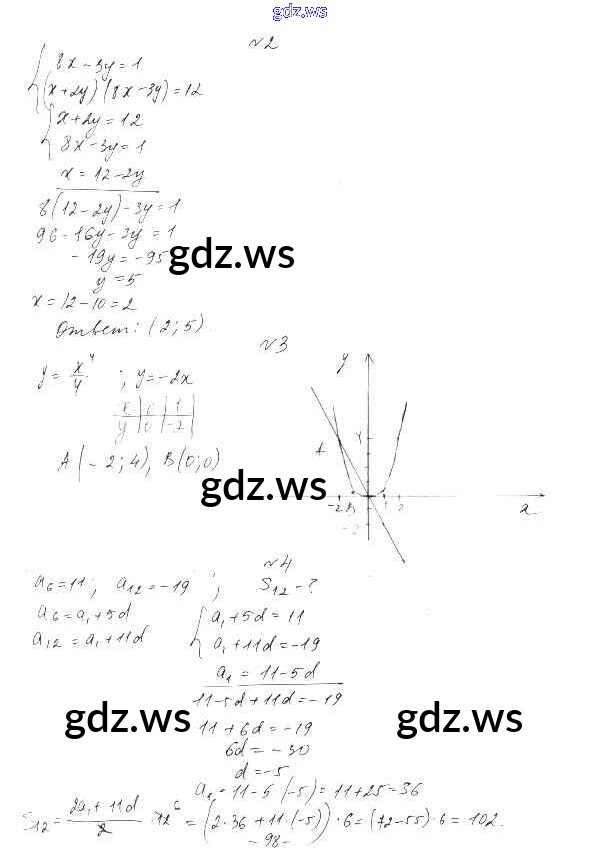 gdz.ws
№2
8x - 3y = 1
(x + 2y)(8x - 3y) = 12
x + 2y = 12
8x - 3y = 1
x = 12 - 2y
8(12 - 2y) - 3y = 1
96 - 16y - 3y = 1
- 19y = -95
gdz.ws
y = 5
x = 12 - 10 = 2
Ответ: (2; 5).
№3
y = x⁴/4 ; y = -2x
x | 0 | 1
y | 0 | -2
A(-2; 4), B(0; 0)
y
4
A
-2 B 1 2
-2
x
gdz.ws
№4
a₆ = 11; a₁₂ = -19 ; S₁₂ - ?
a₆ = a₁ + 5d
a₁₂ = a₁ + 11d
a₁ + 5d = 11
a₁ + 11d = -19
a₁ = 11 - 5d
11 - 5d + 11d = -19
gdz.ws gdz.ws
11 + 6d = -19
6d = -30
d = -5
a₁ = 11 - 5(-5) = 11 + 25 = 36
S₁₂ = (2a₁ + 11d)/2 · 12 ⁶ = (2·36 + 11·(-5))·6 = (72 - 55)·6 = 102.
- 98 -